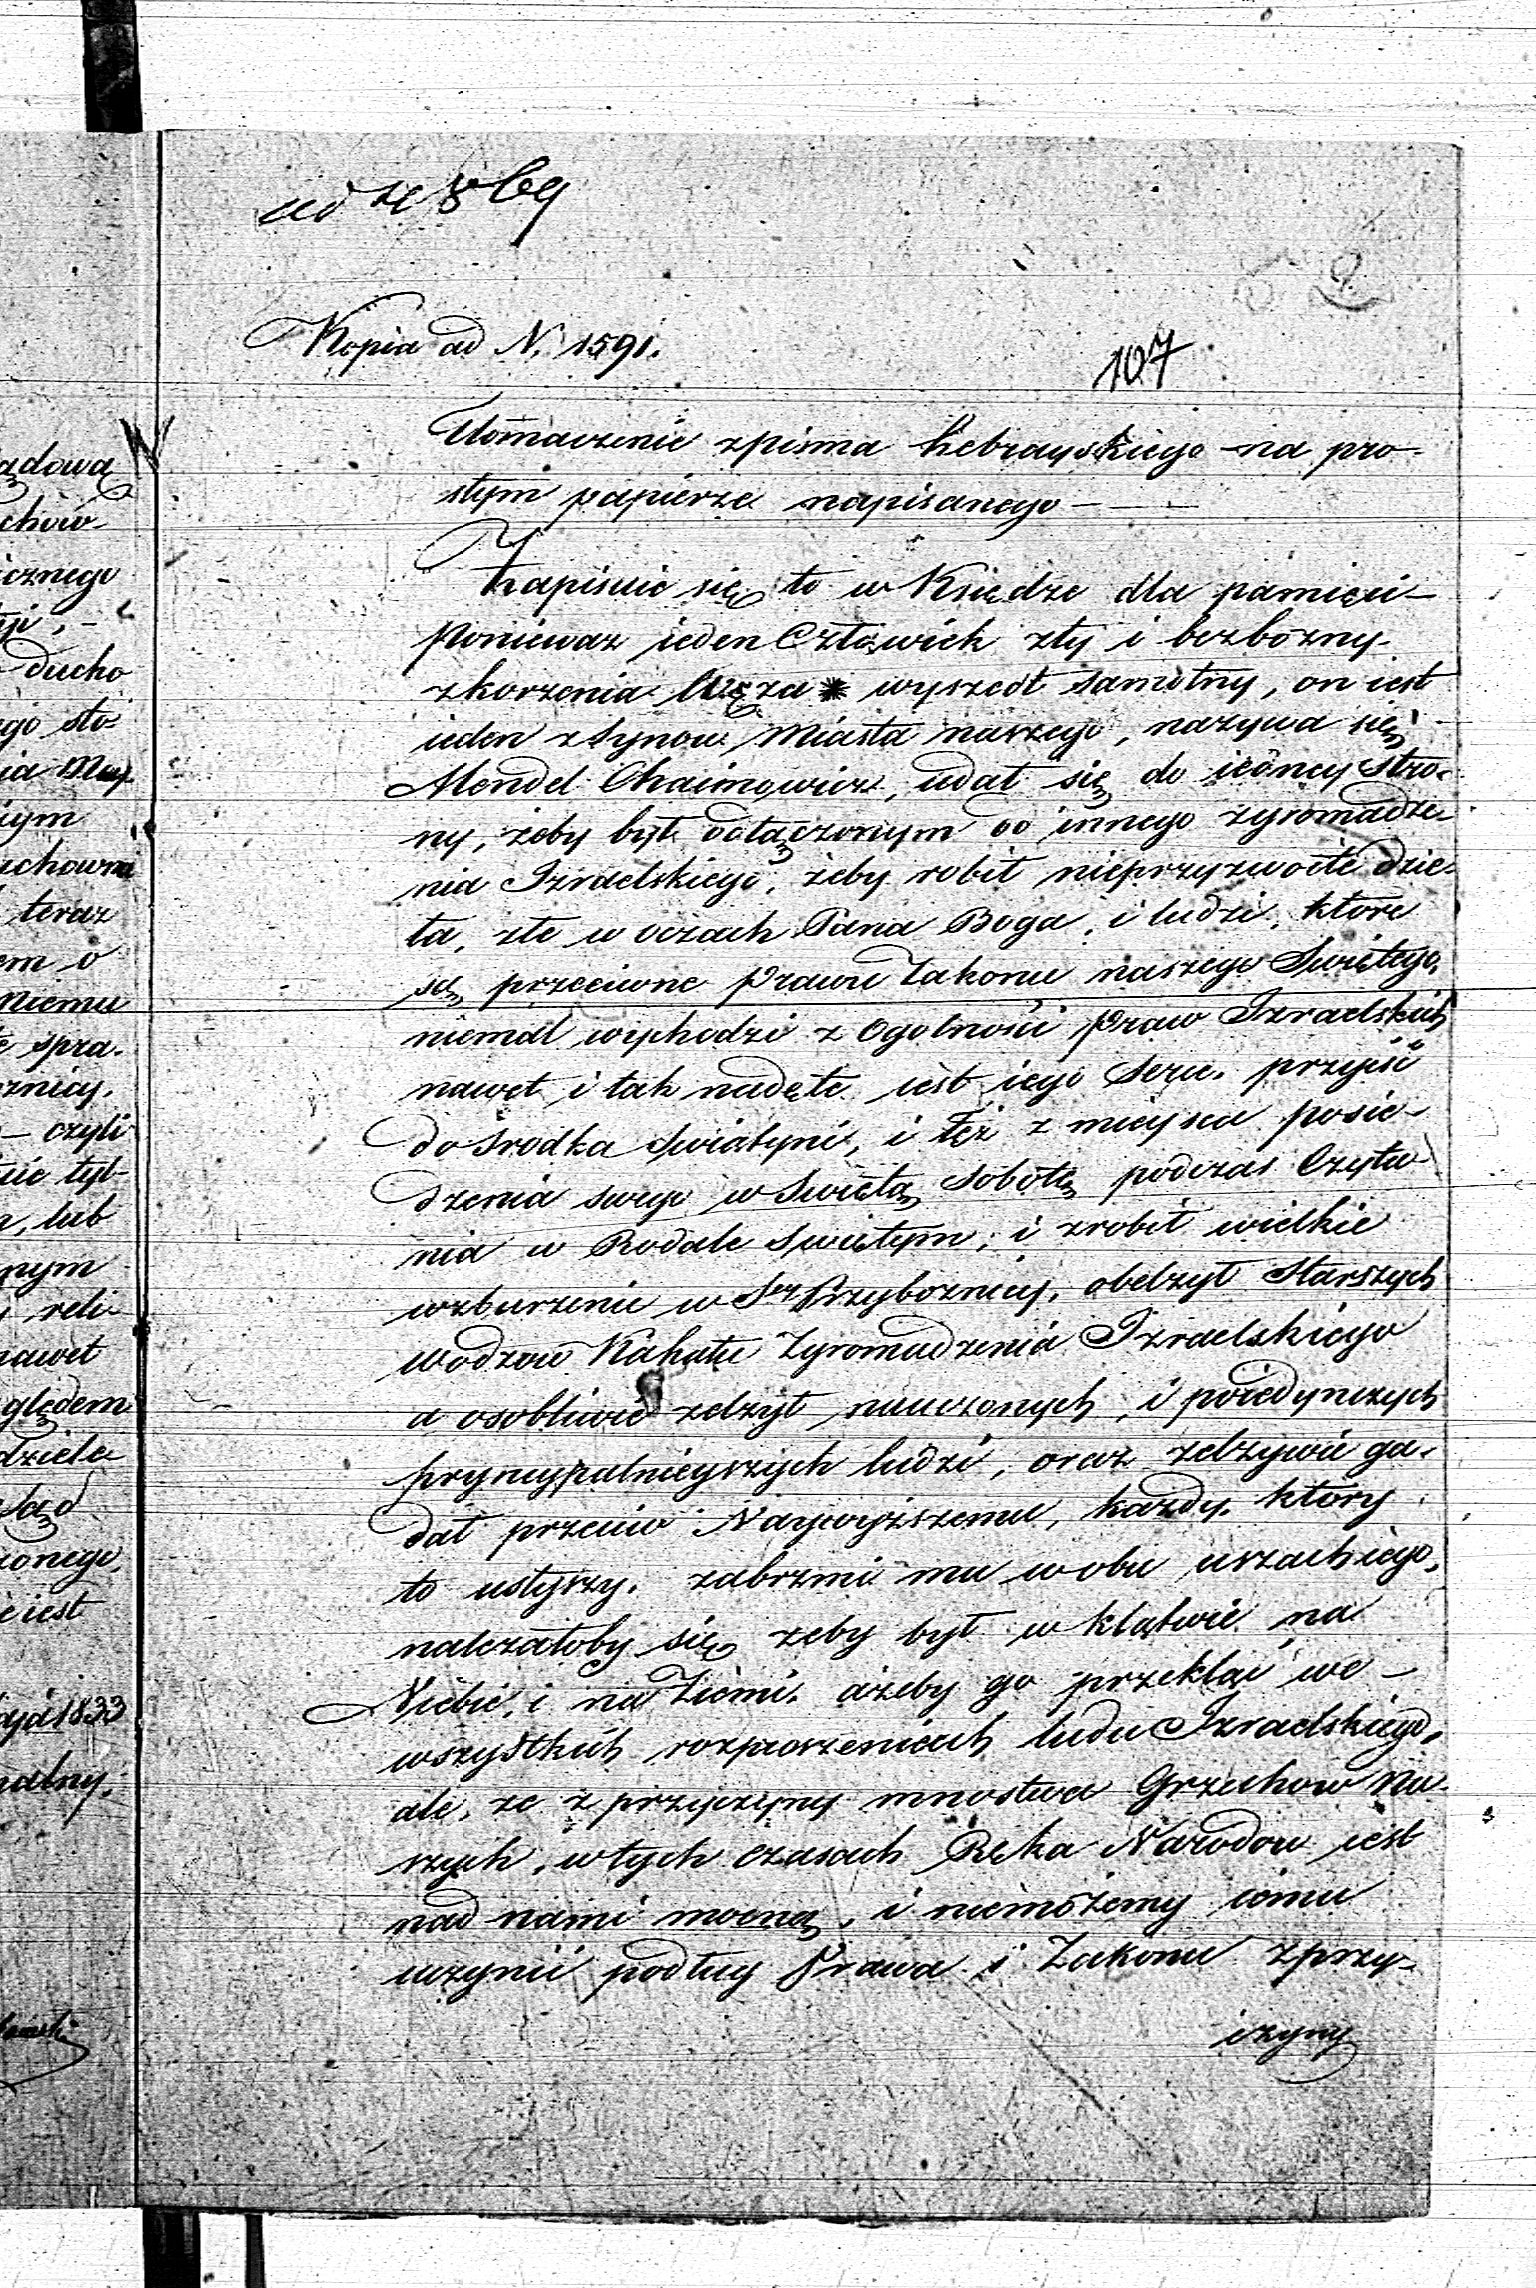 Kopia ad N. 1591.
107
Tłómaczenie zpisma hebrayskiego na pro-
stym papierze napisanego —
Zapisuie się to w Księdze dla pamięci —
Poniewaz ieden Człowiek zły i bezbożny
zkorzenia Węża wyszedł samotny, on iest
ieden z Synow Miasta naszego, nazywa się
Mendel Chaimowicz, udał się do iedney stro-
ny, żeby był dołączonym do innego zgromadze-
nia Izraelskiego, żeby robił nieprzyzwoite dzie-
ła, złe w oczach Pana Boga, i ludzi, które
są przeciwne Prawu Zakonu naszego Swiętego,
niemal wychodzi z Ogolności Praw Izraelskich
nawet i tak nadęte iest iego Serce, przyiść
do srodka Swiątyni, i też z mieysca posie-
dzenia swego w Swiętą Sobotę podczas Czyta-
nia w Rodale Swiętym, i zrobił wielkie
wzburzenie w Przybożnicy, obelżył Starszych
wodzow Kahału Zgromadzenia Izraelskiego
a osobliwie zelżył nauczonych, i poiedynczych
pryncypalnieyszych ludzi, oraz zelżywie ga-
dał przeciw Naywyższemu, każdy, który
to usłyszy, zabrzmi mu w obu uszach iego,
należałoby się żeby był w klątwie na
Niebie, i na Ziemi, ażeby go przekląć we —
wszystkich rozproszeniach ludu Izraelskiego,
ale, ze z przyczyny mnostwa Grzechow na-
szych, w tych czasach Ręka Narodow iest
nad nami mocną, i niemożemy iemu
uczynić podług Prawa i Zakonu zprzy-
czyny
ądowa
chów
icznego
ducho
ego sto
teraz
em o
niemu
spra-
żnicy.
— czyli
lub
nym
reli-
nawet
ględem
dziele
Sąd
zonego,
iest
aja 1833